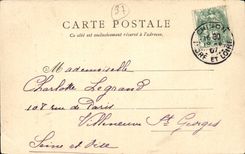 37
CARTE POSTALE
Ce côté est exclusivement réservé à l'adresse.
Mademoiselle
Charlotte Legrand
107 rue de Paris
Villeneuve St Georges
Seine et Oise
30
07
INDRE ET LOIRE